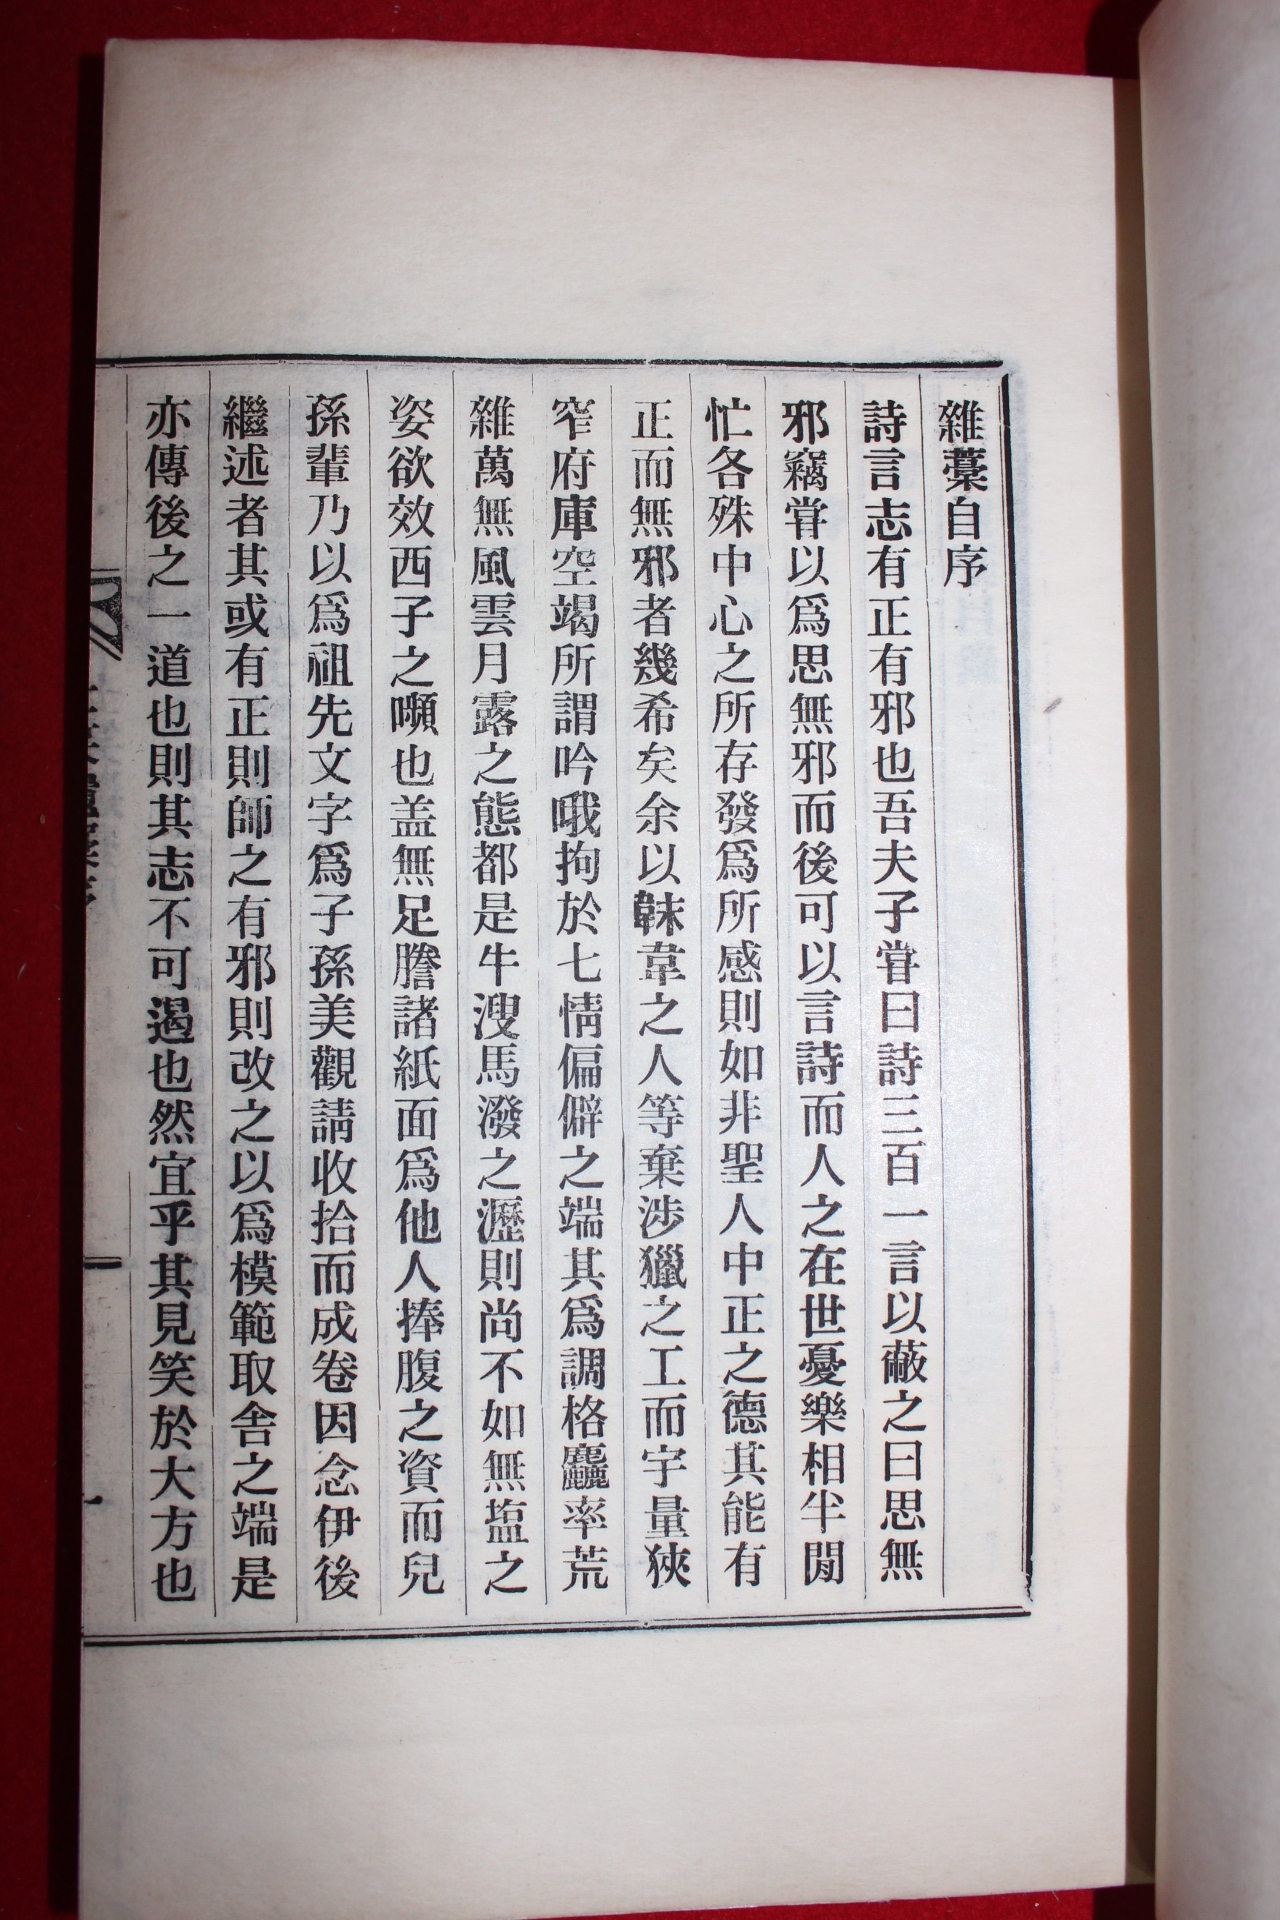 雜藁自序
詩言志有正有邪也吾夫子嘗曰詩三百一言以蔽之曰思無
邪竊嘗以爲思無邪而後可以言詩而人之在世憂樂相半閒
忙各殊中心之所存發爲所感則如非聖人中正之德其能有
正而無邪者幾希矣余以韎韋之人等棄涉獵之工而宇量狹
窄府庫空竭所謂吟哦拘於七情偏僻之端其爲調格麤率荒
雜萬無風雲月露之態都是牛溲馬潑之瀝則尚不如無塩之
姿欲效西子之嚬也盖無足謄諸紙面爲他人捧腹之資而兒
孫輩乃以爲祖先文字爲子孫美觀請收拾而成卷因念伊後
繼述者其或有正則師之有邪則改之以爲模範取舍之端是
亦傳後之一道也則其志不可遏也然宜乎其見笑於大方也